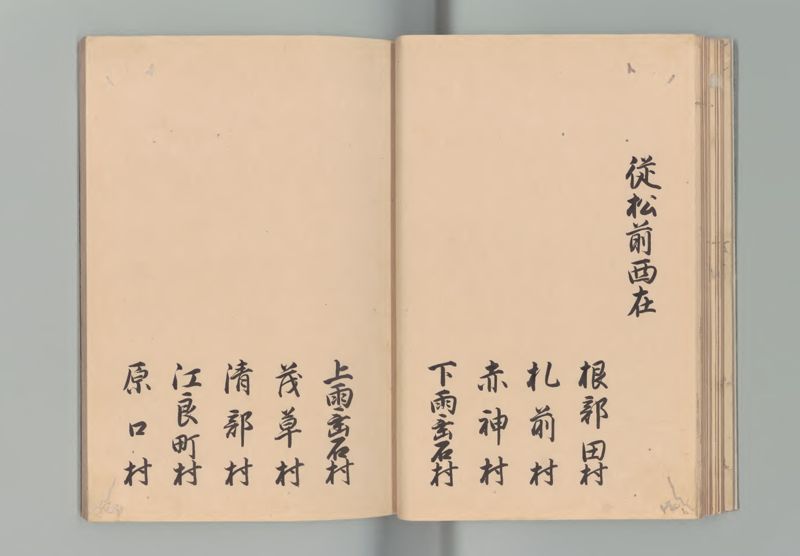 従松前西在
根部田村
札前村
赤神村
下雨宕石村
上雨宕石村
茂草村
清部村
江良町村
原口村